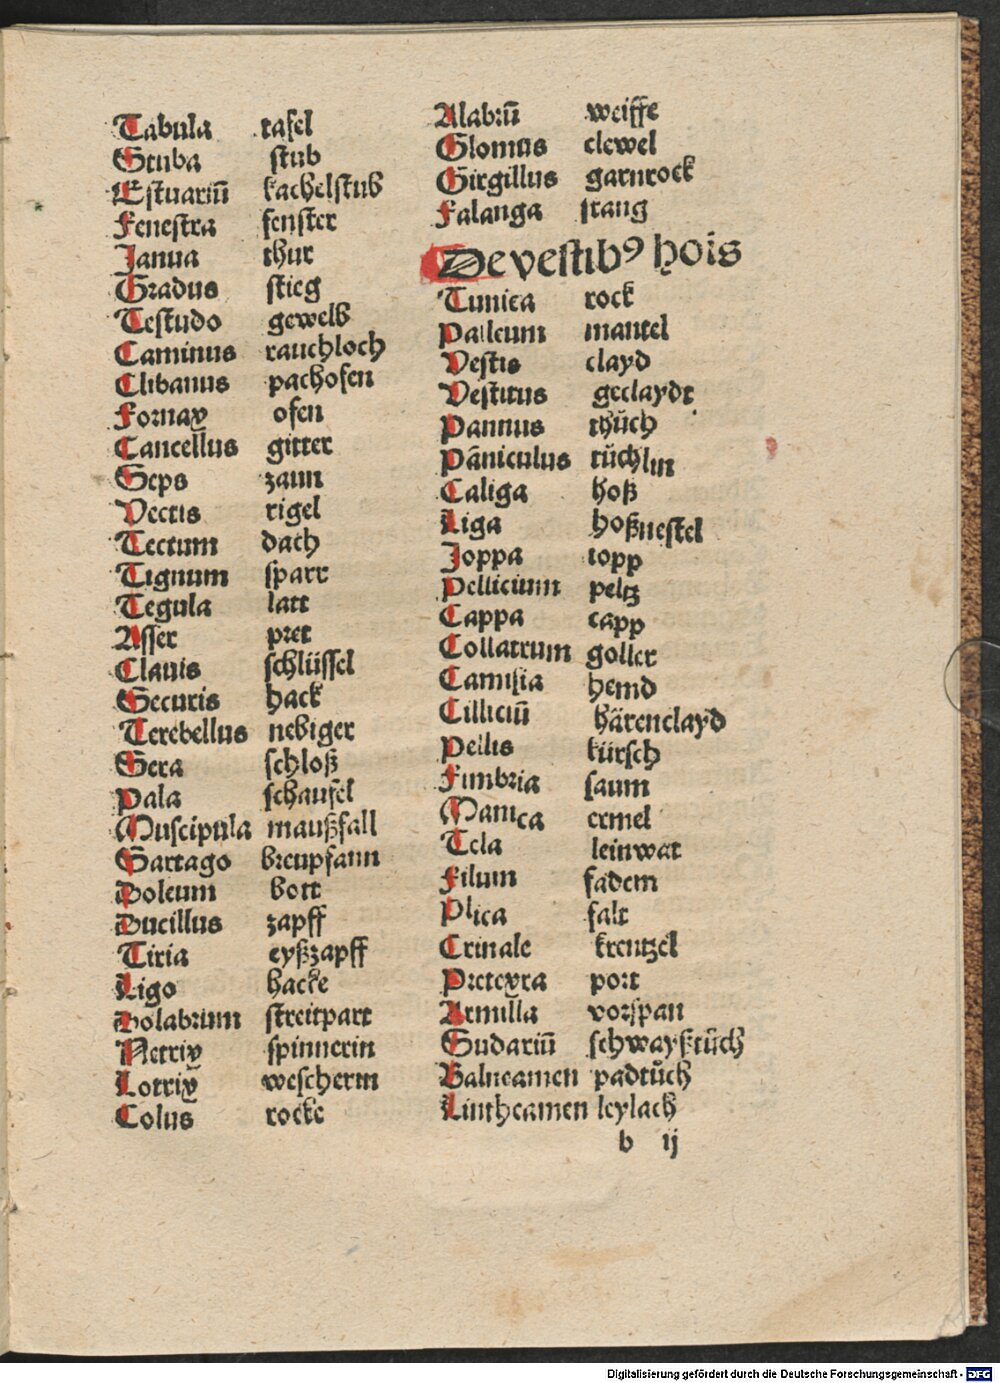 Tabula tafel
Stuba stub
Estuariū kachelstub
Fenestra fenster
Janua thur
Gradus stieg
Testudo gewelb
Caminus rauchloch
Clibanus pachofen
Fornax ofen
Cancellus gitter
Seps zaun
Vectis rigel
Tectum dach
Tignum sparr
Tegula latt
Asser pret
Clauis schlüssel
Securis hack
Terebellus nebiger
Sera schloß
Pala schaufel
Muscipula maußfall
Sartago breupfann
Doleum bott
Ducillus zapff
Tiria eyßzapff
Ligo hacke
Dolabrum streitpart
Netrix spinnerin
Lotrix wescherin
Colus rocke
Alabrū weiffe
Glomus clewel
Girgillus garnrock
Falanga stang
De vestibꝰ hoīs
Tunica rock
Palleum mantel
Vestis clayd
Vestitus geclaydt
Pannus thůch
Pāniculus tüchlin
Caliga hoß
Liga hoßnestel
Joppa iopp
Pellicium peltz
Cappa capp
Collatrum goller
Camisia hemd
Cilliciū härenclayd
Pellis kürsch
Fimbria saum
Manica ermel
Tela leinwat
Filum fadem
Plica falt
Crinale krentzel
Pretexta port
Armilla vorspan
Sudariū schwayßtůch
Balneamen padtůch
Lintheamen leylach
b ij
Digitalisierung gefördert durch die Deutsche Forschungsgemeinschaft - DFG